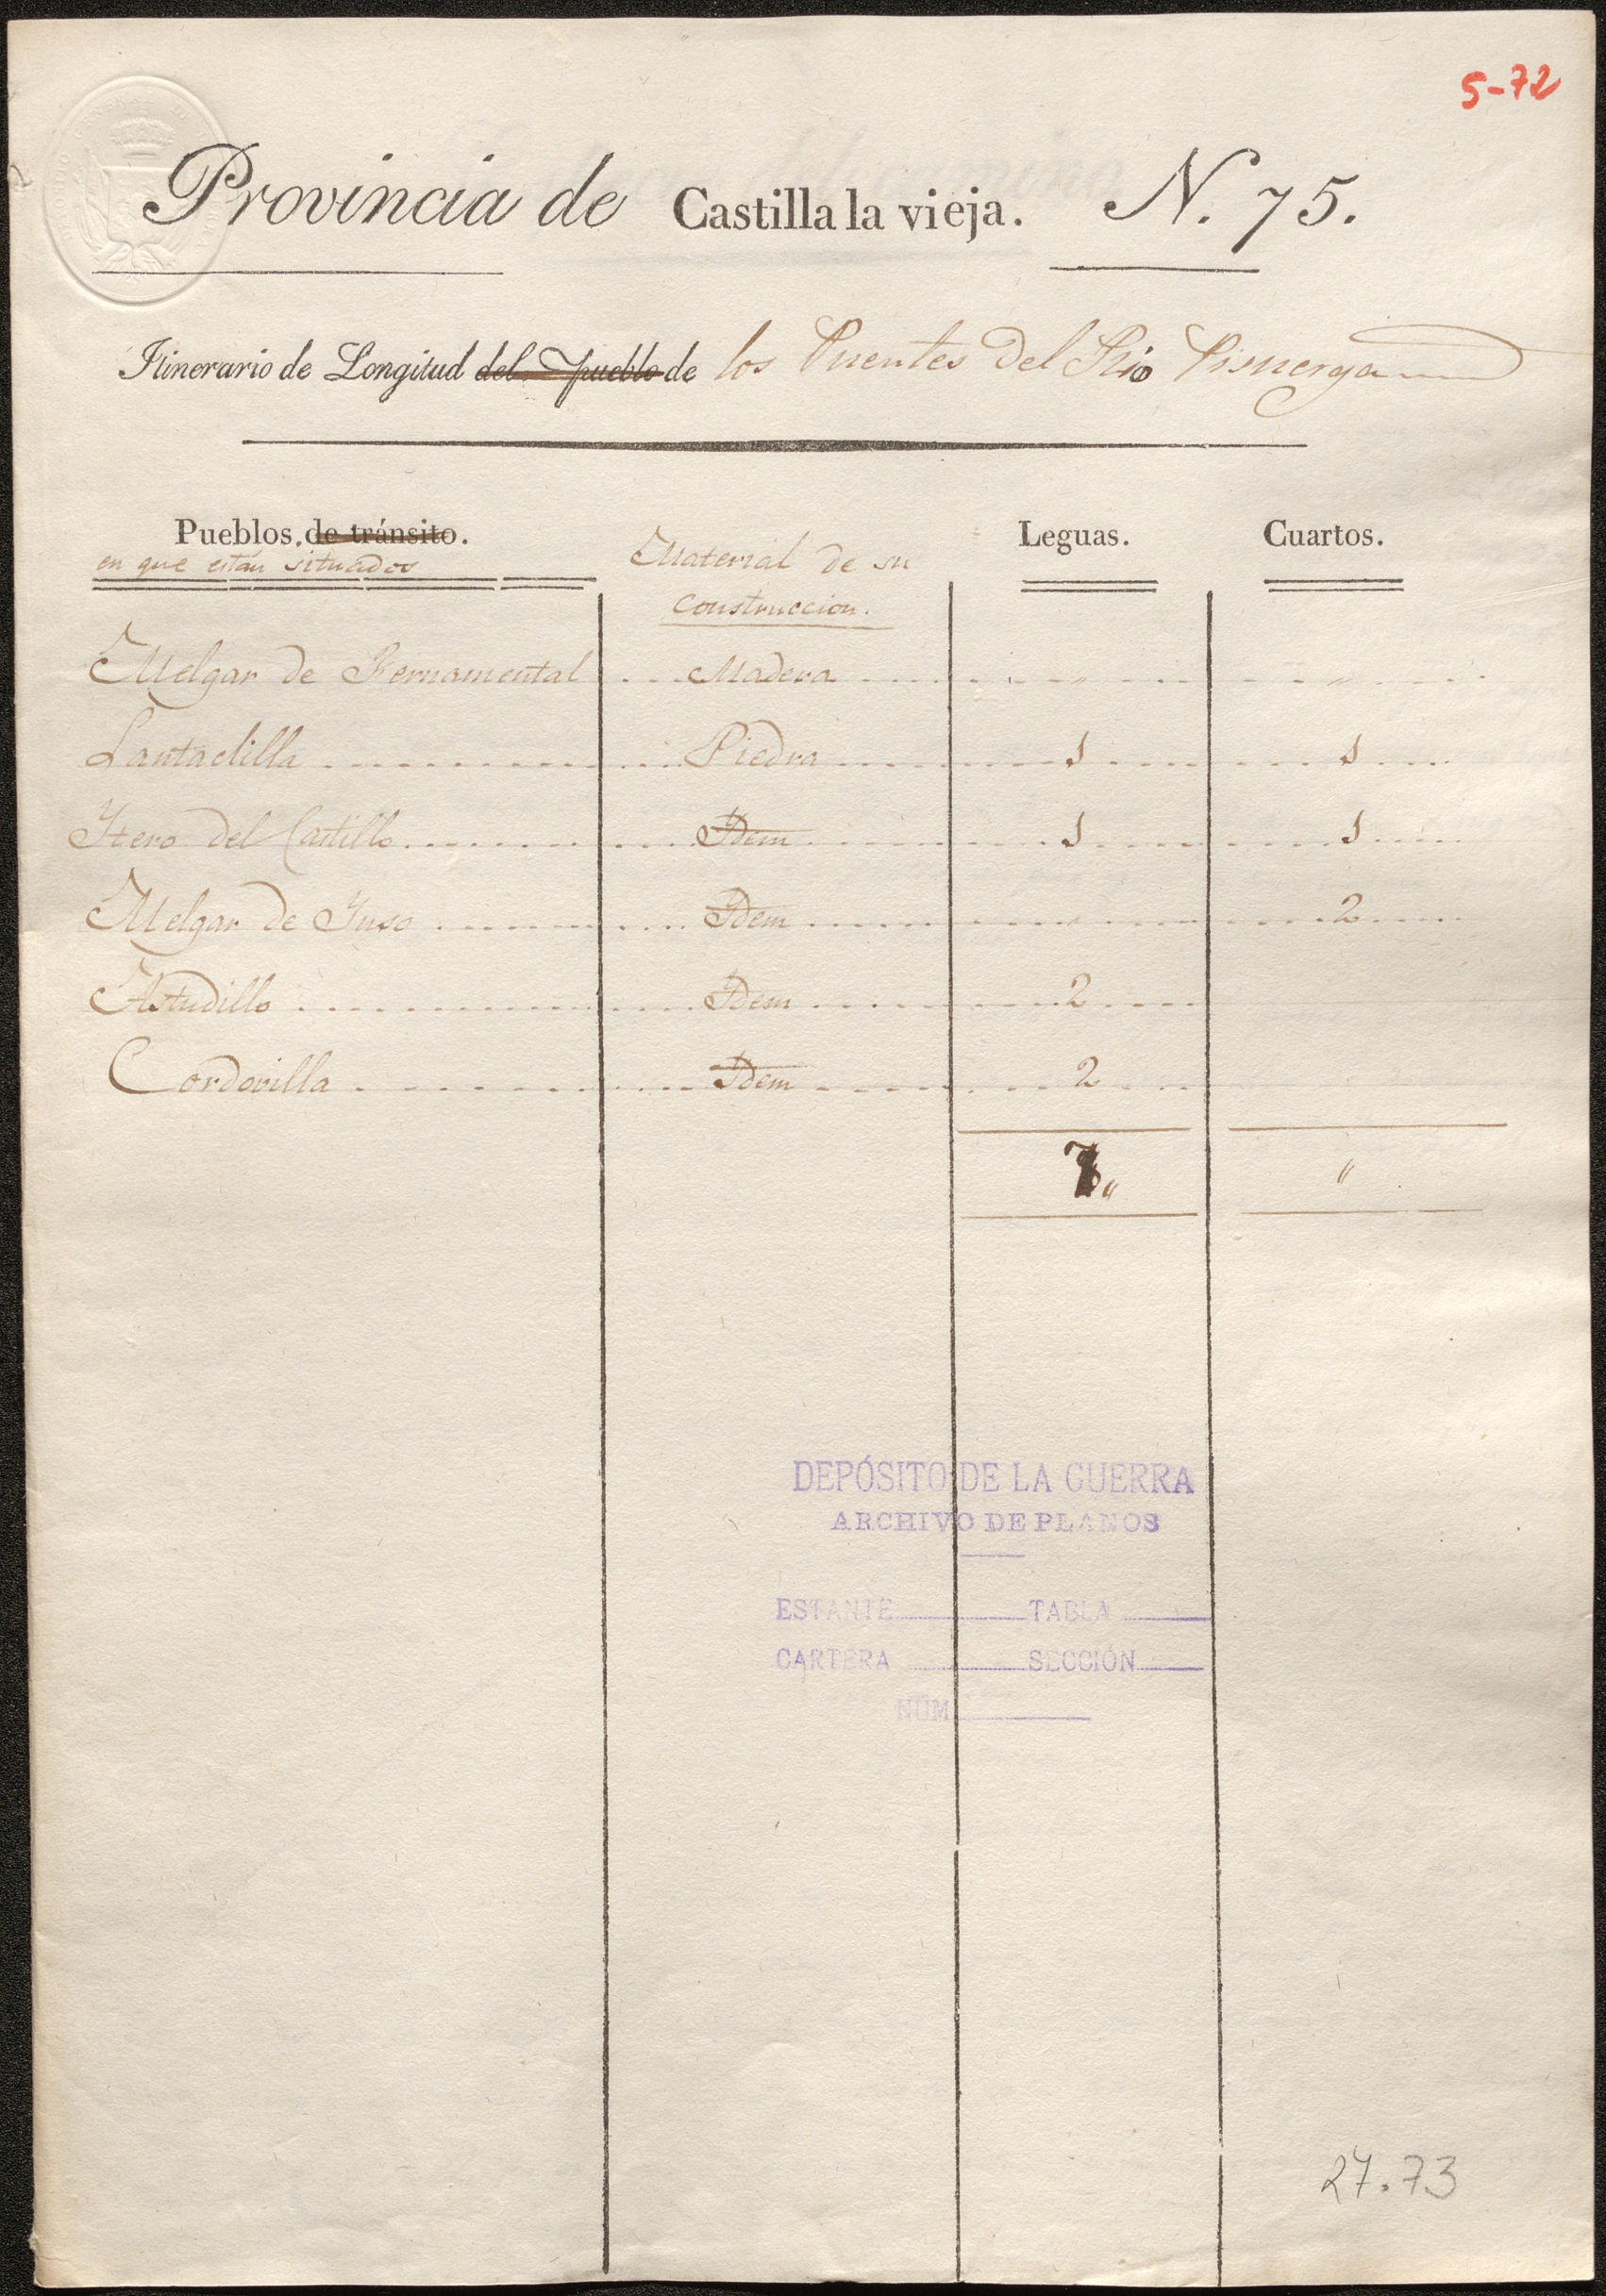 5-72
Provincia de Castilla la vieja. N. 75.
Itinerario de Longitud del Pueblo de los Puentes del Rio Pisuerga
Pueblos. de tránsito. Leguas. Cuartos.
en que están situados Material de su
construccion.
Melgar de Fernamental Madera " "
Lantadilla Piedra 1 1
Ytero del Castillo Ydem 1 1
Melgar de Yuso Ydem " 2
Astudillo Ydem 2
Cordovilla Ydem 2
7 " "
DEPÓSITO DE LA GUERRA
ARCHIVO DE PLANOS
ESTANTE TABLA
CARTERA SECCIÓN
NÚM
27.73